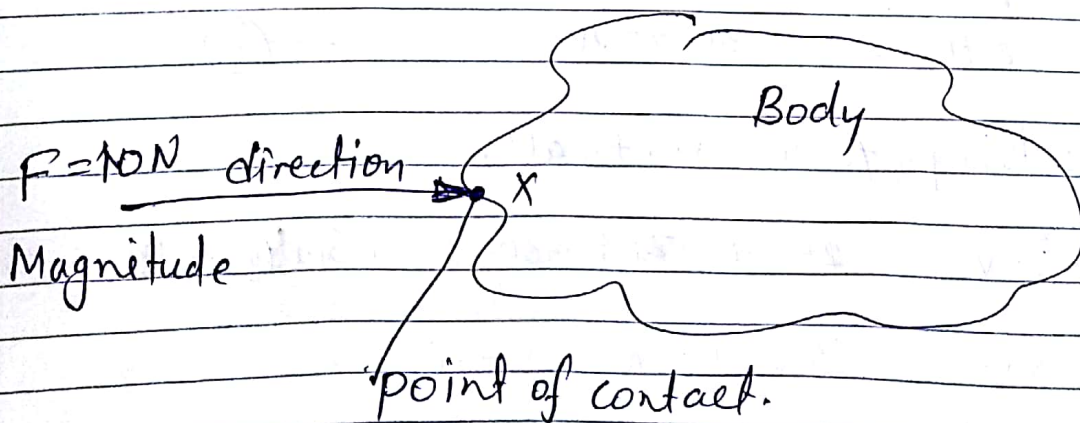 Body
F=10N direction
X
Magnitude
point of contact.